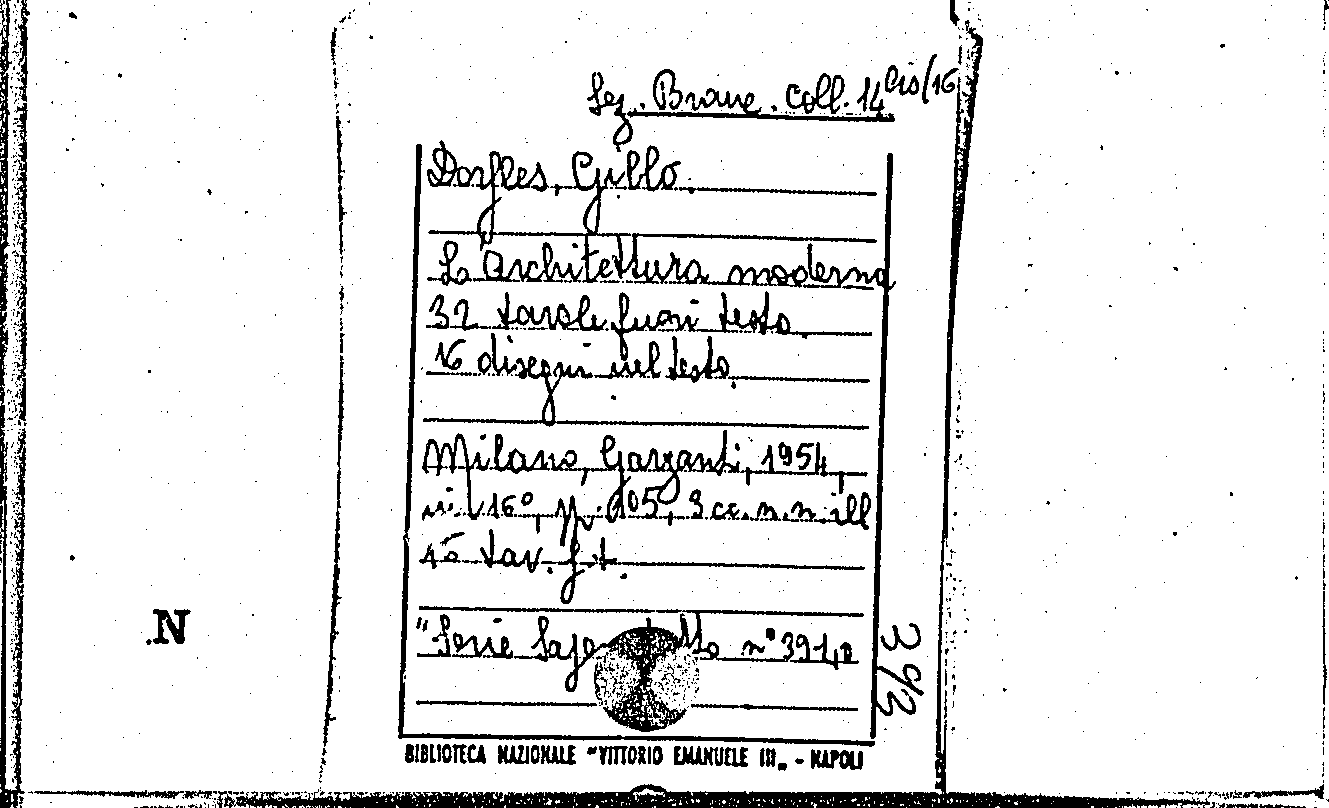 Sez. Branc. coll. 14 bis/16
Dorfles, Gillo.
L'architettura moderna
32 tavole fuori testo.
16 disegni nel testo.
Milano, Garzanti, 1954,
in 16°, pp. 105, 3 cc. n. n. ill
tav. f. t.
"Serie n° 391
393
N.
BIBLIOTECA NAZIONALE "VITTORIO EMANUELE III„ - NAPOLI